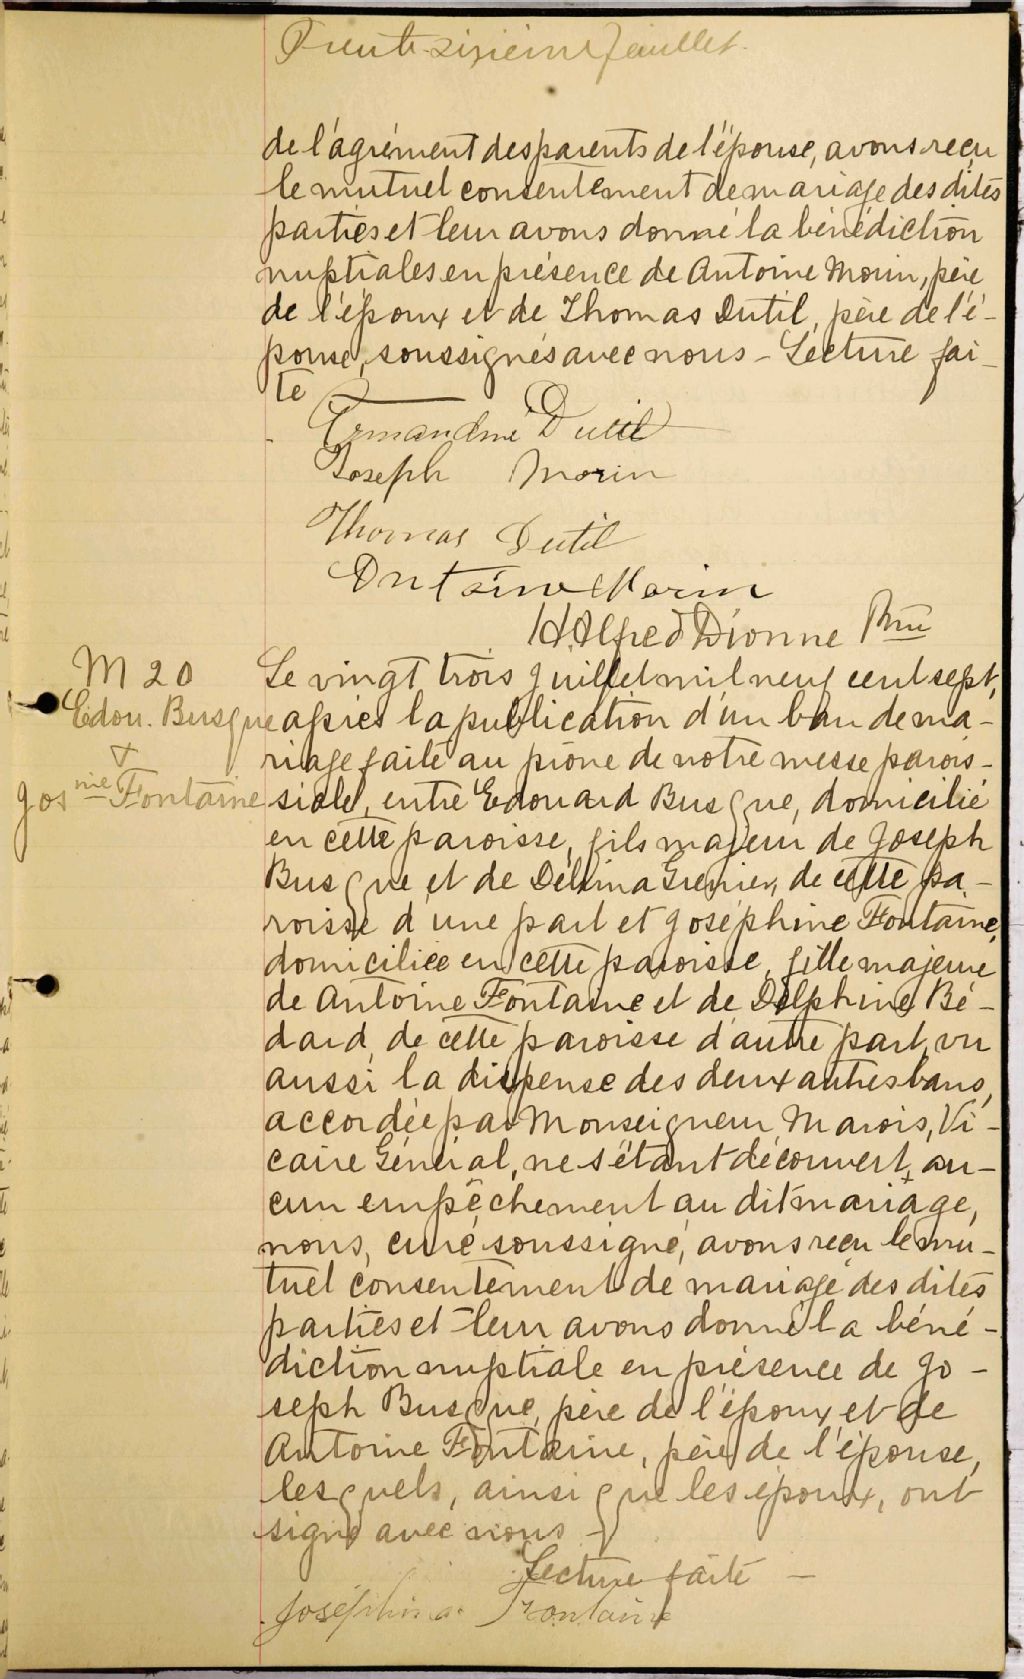 Trente-sixième feuillet.
de l'agrément des parents de l'épouse, avons reçu
le mutuel consentement de mariage des dites
parties et leur avons donné la bénédiction
nuptiales en présence de Antoine Morin, père
de l'époux et de Thomas Dutil, père de l'é-
pouse, soussignés avec nous - Lecture fai-
te
Armandine Dutil
Joseph Morin
Thomas Dutil
Antoine Morin
H. Alfred Dionne Ptre
M 20
Edou. Busque
+
Josnie Fontaine
Le vingt trois Juillet mil neuf cent sept,
après la publication d'un ban de ma-
riage faite au prône de notre messe parois-
siale, entre Edouard Busque, domicilié
en cette paroisse, fils majeur de Joseph
Busque et de Délima Grenier, de cette pa-
roisse d'une part et Joséphine Fontaine,
domiciliée en cette paroisse, fille majeure
de Antoine Fontaine et de Delphine Bé-
dard, de cette paroisse d'autre part, vu
aussi la dispense des deux autres bans,
accordée par Monseigneur Marois, Vi-
caire Général, ne s'étant découvert, au-
cun empêchement au dit mariage,
nous, curé soussigné, avons reçu le mu-
tuel consentement de mariage des dites
parties et leur avons donné la béné-
diction nuptiale en présence de Jo-
seph Busque, père de l'époux, et de
Antoine Fontaine, père de l'épouse,
lesquels, ainsi que les époux, ont
signé avec nous -
Lecture faite -
Joséphine Fontaine